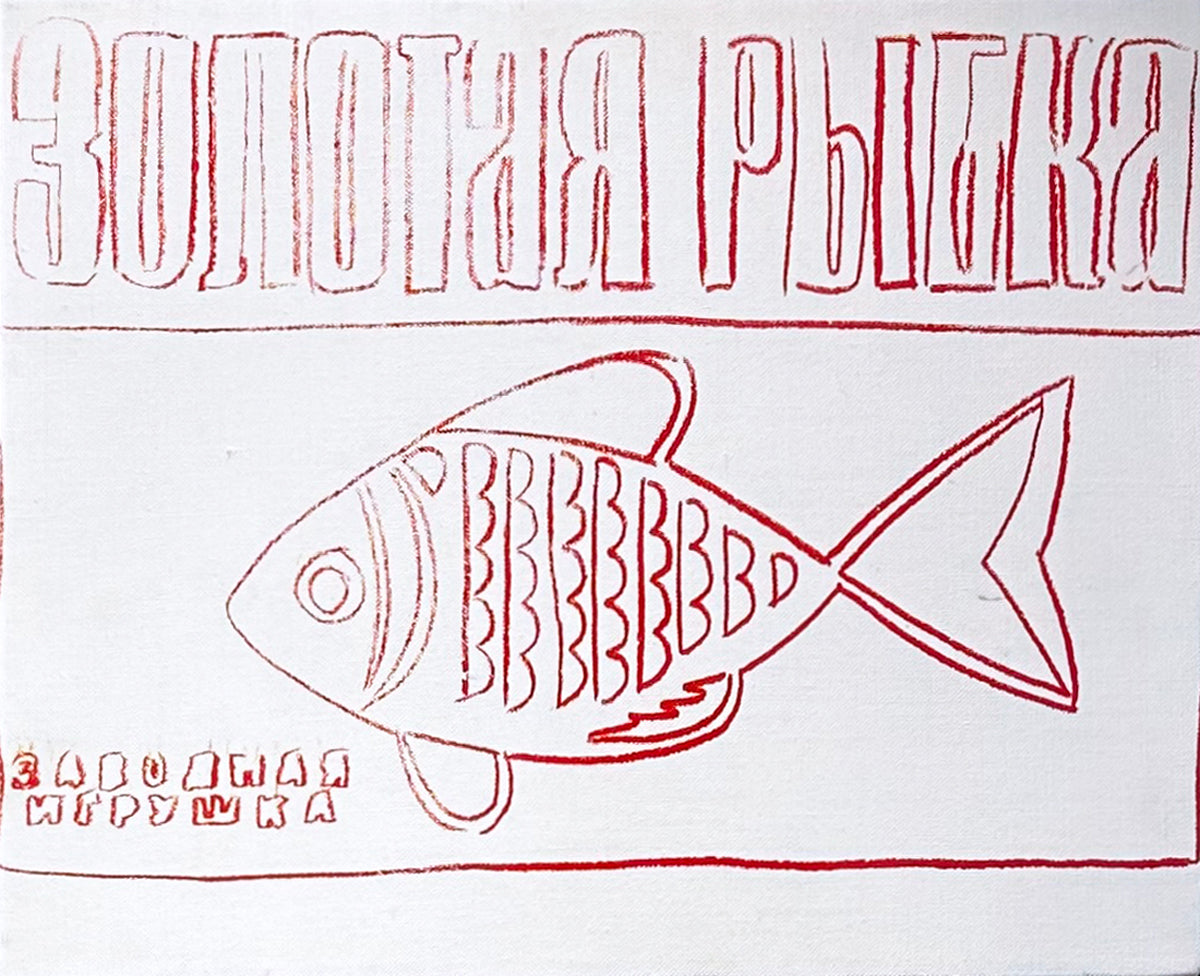 ЗОЛОТАЯ РЫБКА
ЗАВОДНАЯ
ИГРУШКА